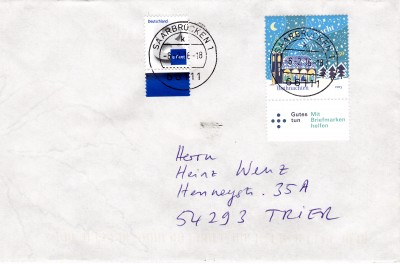 Deutschland
SAARBRÜCKEN 1
SAARBRÜCKEN
66111
66111
Weihnachten
Gutes tun
Mit Briefmarken helfen
Herrn
Heinz Wenz
Henneystr. 35A
54293 TRIER